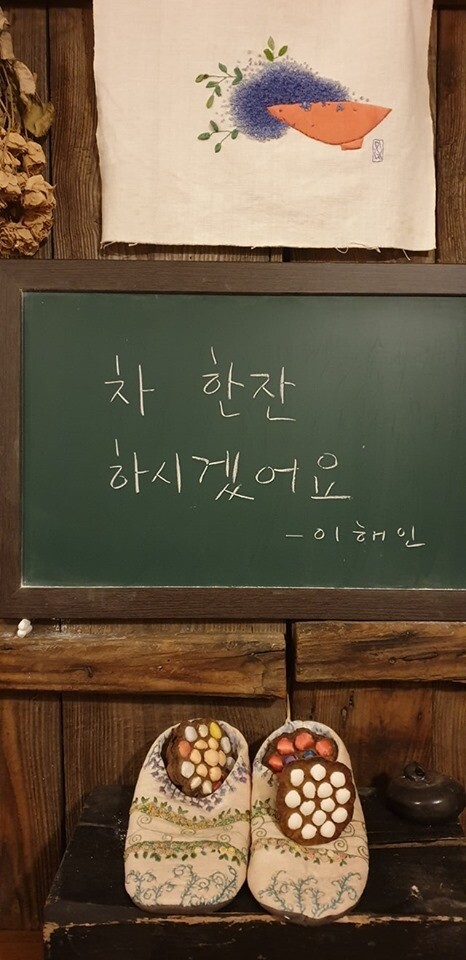 차 한잔
하시겠어요
- 이해인